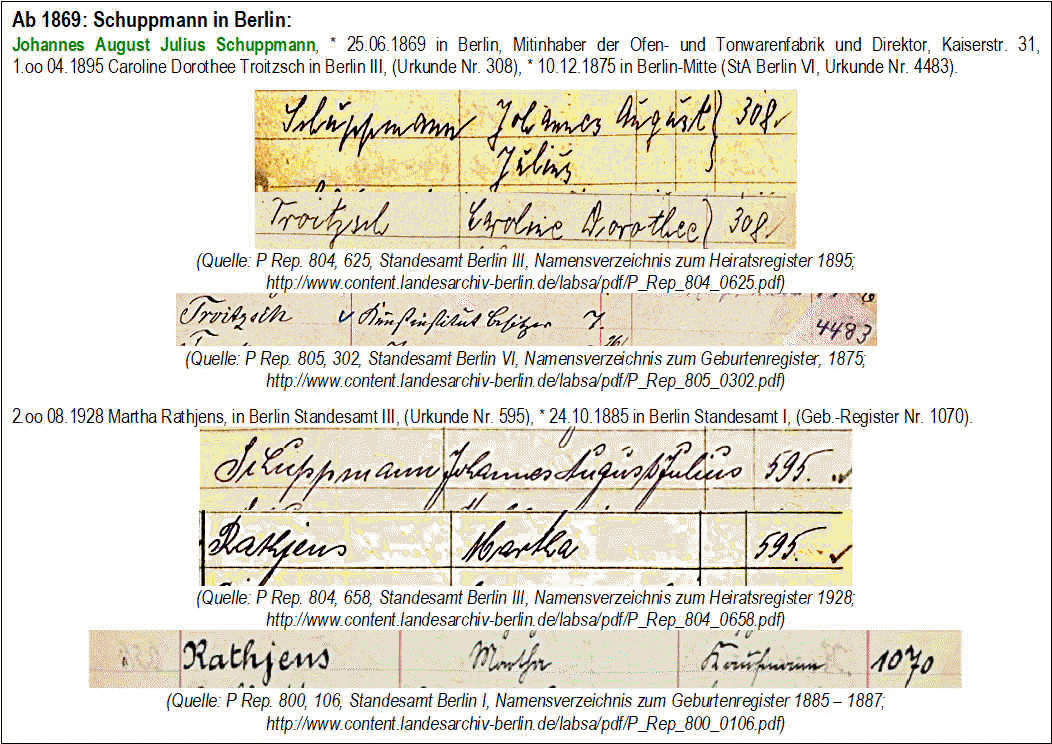 Ab 1869: Schuppmann in Berlin:
Johannes August Julius Schuppmann, * 25.06.1869 in Berlin, Mitinhaber der Ofen- und Tonwarenfabrik und Direktor, Kaiserstr. 31,
1.oo 04.1895 Caroline Dorothee Troitzsch in Berlin III, (Urkunde Nr. 308), * 10.12.1875 in Berlin-Mitte (StA Berlin VI, Urkunde Nr. 4483).
Schuppmann Johannes August } 308.
Julius
Troitzsch Caroline Dorothee } 308.
(Quelle: P Rep. 804, 625, Standesamt Berlin III, Namensverzeichnis zum Heiratsregister 1895;
http://www.content.landesarchiv-berlin.de/labsa/pdf/P_Rep_804_0625.pdf)
Troitzsch Kunstinstitut besitzer T. 4483
(Quelle: P Rep. 805, 302, Standesamt Berlin VI, Namensverzeichnis zum Geburtenregister, 1875;
http://www.content.landesarchiv-berlin.de/labsa/pdf/P_Rep_805_0302.pdf)
2.oo 08.1928 Martha Rathjens, in Berlin Standesamt III, (Urkunde Nr. 595), * 24.10.1885 in Berlin Standesamt I, (Geb.-Register Nr. 1070).
Schuppmann Johannes August Julius 595.
Rathjens Martha 595.
(Quelle: P Rep. 804, 658, Standesamt Berlin III, Namensverzeichnis zum Heiratsregister 1928;
http://www.content.landesarchiv-berlin.de/labsa/pdf/P_Rep_804_0658.pdf)
Rathjens Martha Kaufmann 1070
(Quelle: P Rep. 800, 106, Standesamt Berlin I, Namensverzeichnis zum Geburtenregister 1885 – 1887;
http://www.content.landesarchiv-berlin.de/labsa/pdf/P_Rep_800_0106.pdf)